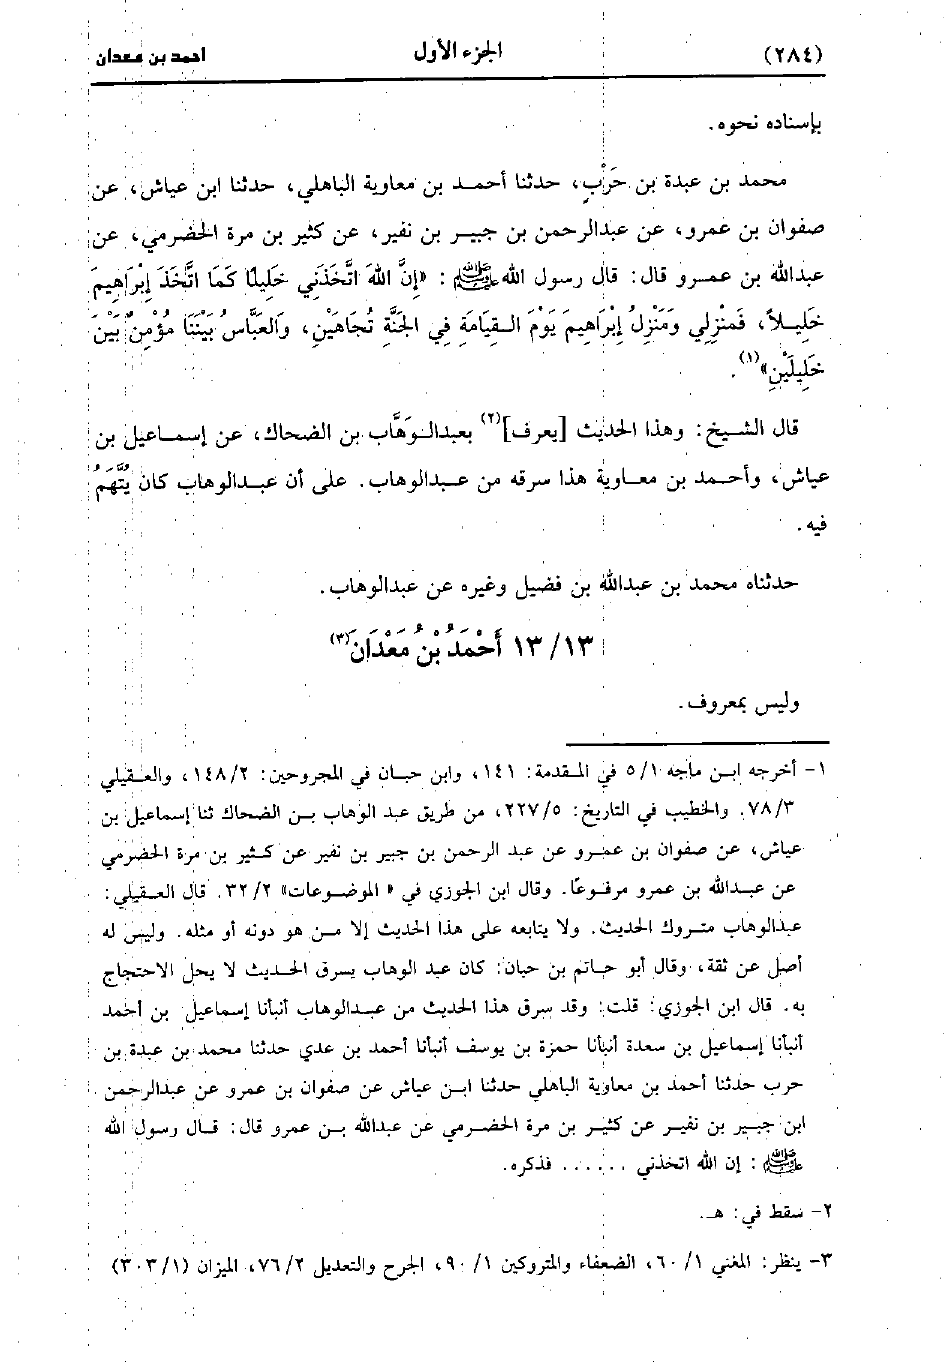 (٢٨٤) الجزء الأول احمد بن معدان
بإسناده نحوه.
محمد بن عبدة بن حَرْبٍ، حدثنا أحمد بن معاوية الباهلي، حدثنا ابن عياش، عن
صفوان بن عمرو، عن عبدالرحمن بن جبير بن نفير، عن كثير بن مرة الحضرمي، عن
عبدالله بن عمرو قال: قال رسول الله ﷺ : «إِنَّ اللهَ اتَّخَذَنِي خَلِيلًا كَمَا اتَّخَذَ إِبْرَاهِيمَ
خَلِيلاً، فَمَنْزِلِي وَمَنْزِلُ إِبْرَاهِيمَ يَوْمَ القِيَامَةِ فِي الجَنَّةِ تُجَاهَيْنِ، وَالعَبَّاسُ بَيْنَنَا مُؤْمِنٌ بَيْنَ
خَلِيلَيْنِ»(١).
قال الشيخ: وهذا الحديث [يعرف](٢) بعبدالوَهَّاب بن الضحاك، عن إسماعيل بن
عياش، وأحمد بن معاوية هذا سرقه من عبدالوهاب. على أن عبدالوهاب كان يُتَّهَمُ
فيه.
حدثناه محمد بن عبدالله بن فضيل وغيره عن عبدالوهاب.
١٣/ ١٣ أَحْمَدُ بْنُ مَعْدَانَ(٣)
وليس بمعروف.
١- أخرجه ابن ماجه ٥/١ في المقدمة: ١٤١، وابن حبان في المجروحين: ١٤٨/٢، والعقيلي
٧٨/٣. والخطيب في التاريخ: ٢٢٧/٥، من طريق عبد الوهاب بن الضحاك ثنا إسماعيل بن
عياش، عن صفوان بن عمرو عن عبد الرحمن بن جبير بن نفير عن كثير بن مرة الحضرمي
عن عبدالله بن عمرو مرفوعًا. وقال ابن الجوزي في « الموضوعات» ٣٢/٢. قال العقيلي:
عبدالوهاب متروك الحديث. ولا يتابعه على هذا الحديث إلا من هو دونه أو مثله. وليس له
أصل عن ثقة، وقال أبو حاتم بن حبان: كان عبد الوهاب يسرق الحديث لا يحل الاحتجاج
به. قال ابن الجوزي: قلت: وقد سرق هذا الحديث من عبدالوهاب أنبأنا إسماعيل بن أحمد
أنبأنا إسماعيل بن سعدة أنبأنا حمزة بن يوسف أنبأنا أحمد بن عدي حدثنا محمد بن عبدة بن
حرب حدثنا أحمد بن معاوية الباهلي حدثنا ابن عياش عن صفوان بن عمرو عن عبدالرحمن
ابن جبير بن نفير عن كثير بن مرة الحضرمي عن عبدالله بن عمرو قال: قال رسول الله
ﷺ : إن الله اتخذني ...... فذكره.
٢- سقط في: هـ.
٣- ينظر: المغني ١/ ٦٠، الضعفاء والمتروكين ١/ ٩٠، الجرح والتعديل ٧٦/٢، الميزان (٣٠٣/١)